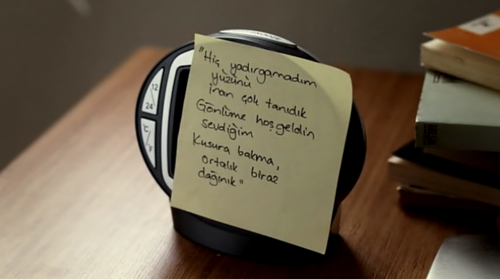 "Hiç yadırgamadım
yüzünü
inan çok tanıdık
Gönlüme hoşgeldin
sevdiğim
Kusura bakma,
ortalık biraz
dağınık"
12
24
°C
°F